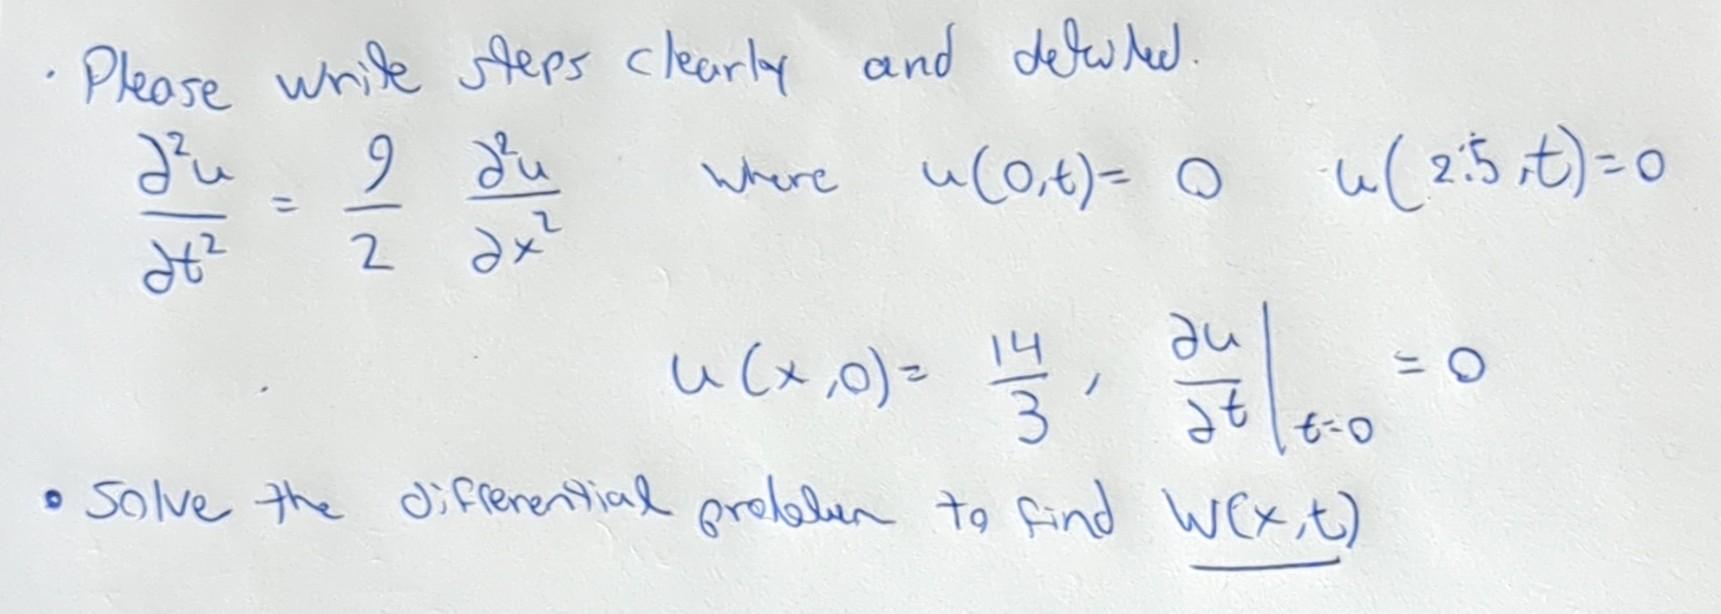 · Please write steps clearly and detailed.
∂²u/∂t² = 9/2 ∂²u/∂x² where u(0,t)= 0 u(2.5,t)=0
u(x,0)= 14/3, ∂u/∂t|t=0 = 0
• Solve the differential problem to find W(x,t)